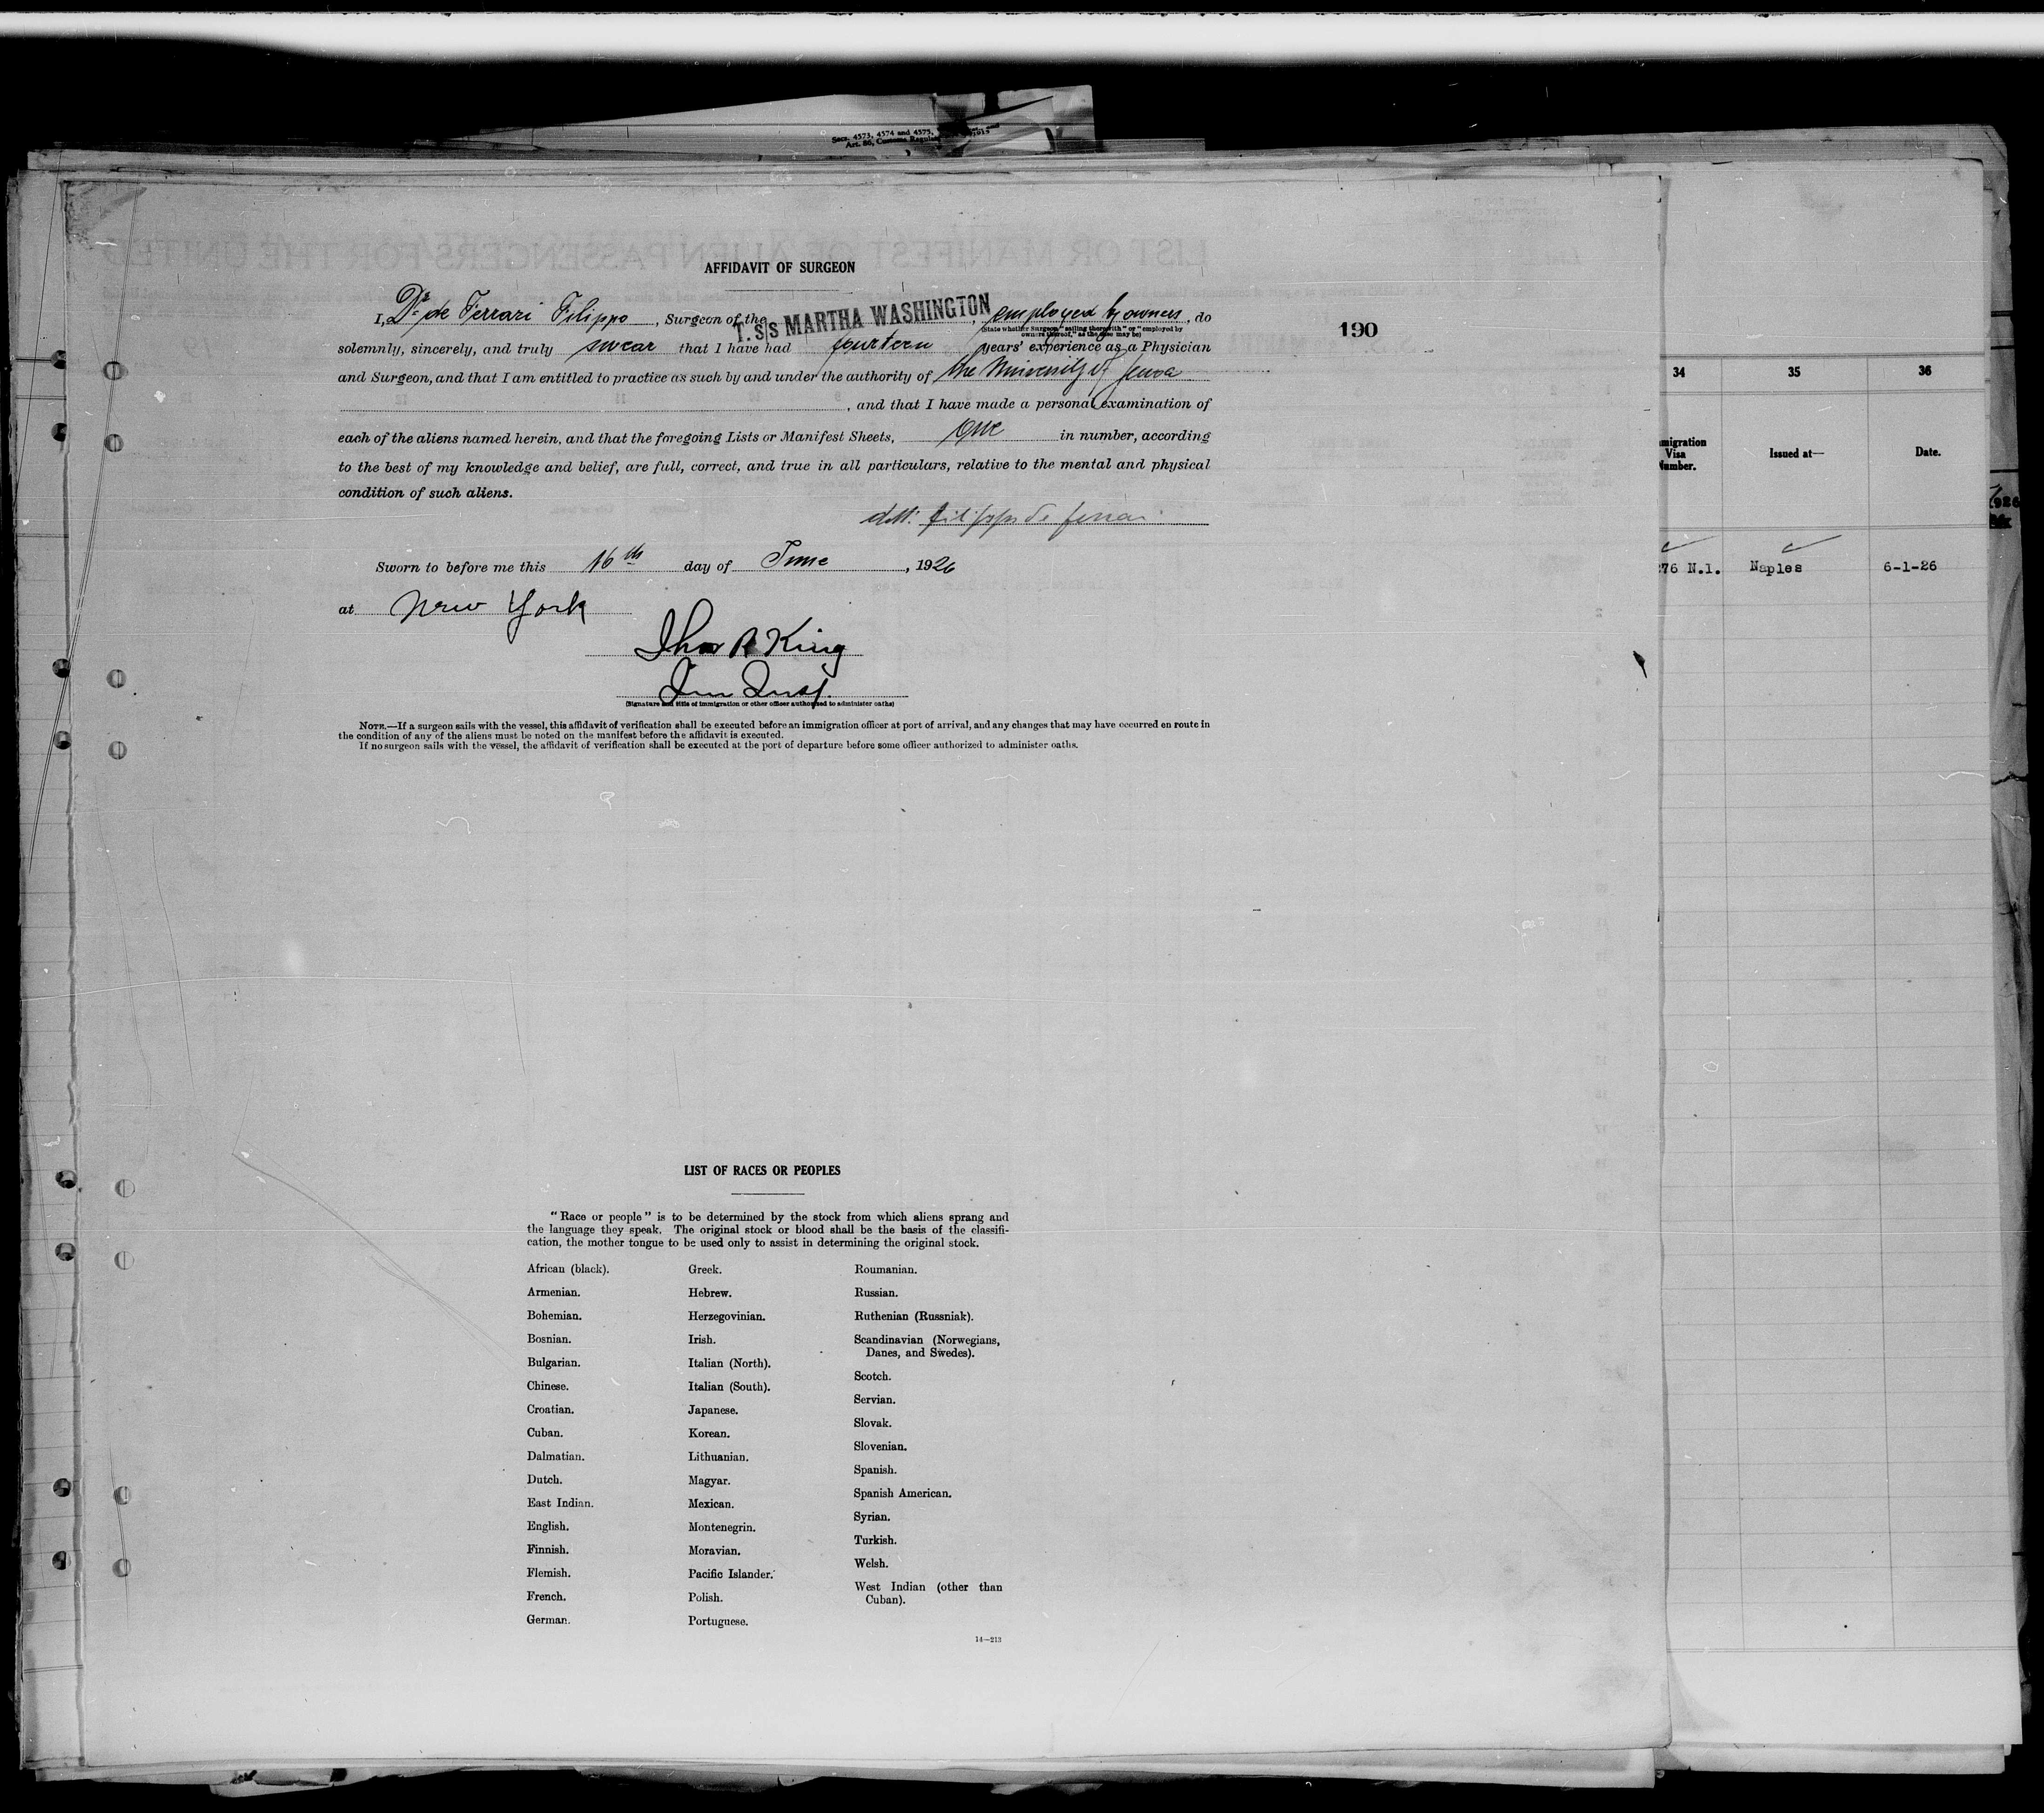 Secs. 4573, 4574 and 4575,
Art. 86, Customs
AFFIDAVIT OF SURGEON
I, Dr. de Ferrari Filippo, Surgeon of the T. S/S MARTHA WASHINGTON, employed by owners, do
(State whether Surgeon "sailing therewith" or "employed by
owners thereof," as the case may be)
190
solemnly, sincerely, and truly swear that I have had fourteen years' experience as a Physician
and Surgeon, and that I am entitled to practice as such by and under the authority of the University of Genoa
, and that I have made a personal examination of
each of the aliens named herein, and that the foregoing Lists or Manifest Sheets, One in number, according
to the best of my knowledge and belief, are full, correct, and true in all particulars, relative to the mental and physical
condition of such aliens.
dott. filippo de ferrari
Sworn to before me this 16th day of June, 1926
at New York
Thos R King
Im Insp.
(Signature and title of immigration or other officer authorized to administer oaths)
NOTE.—If a surgeon sails with the vessel, this affidavit of verification shall be executed before an immigration officer at port of arrival, and any changes that may have occurred en route in
the condition of any of the aliens must be noted on the manifest before the affidavit is executed.
If no surgeon sails with the vessel, the affidavit of verification shall be executed at the port of departure before some officer authorized to administer oaths.
LIST OF RACES OR PEOPLES
"Race or people" is to be determined by the stock from which aliens sprang and
the language they speak. The original stock or blood shall be the basis of the classifi-
cation, the mother tongue to be used only to assist in determining the original stock.
African (black).
Armenian.
Bohemian.
Bosnian.
Bulgarian.
Chinese.
Croatian.
Cuban.
Dalmatian.
Dutch.
East Indian.
English.
Finnish.
Flemish.
French.
German.
Greek.
Hebrew.
Herzegovinian.
Irish.
Italian (North).
Italian (South).
Japanese.
Korean.
Lithuanian.
Magyar.
Mexican.
Montenegrin.
Moravian.
Pacific Islander.
Polish.
Portuguese.
Roumanian.
Russian.
Ruthenian (Russniak).
Scandinavian (Norwegians,
Danes, and Swedes).
Scotch.
Servian.
Slovak.
Slovenian.
Spanish.
Spanish American.
Syrian.
Turkish.
Welsh.
West Indian (other than
Cuban).
14—213
34 35 36
migration
Visa
Number.
Issued at—
Date.
76 N.1. Naples 6-1-26